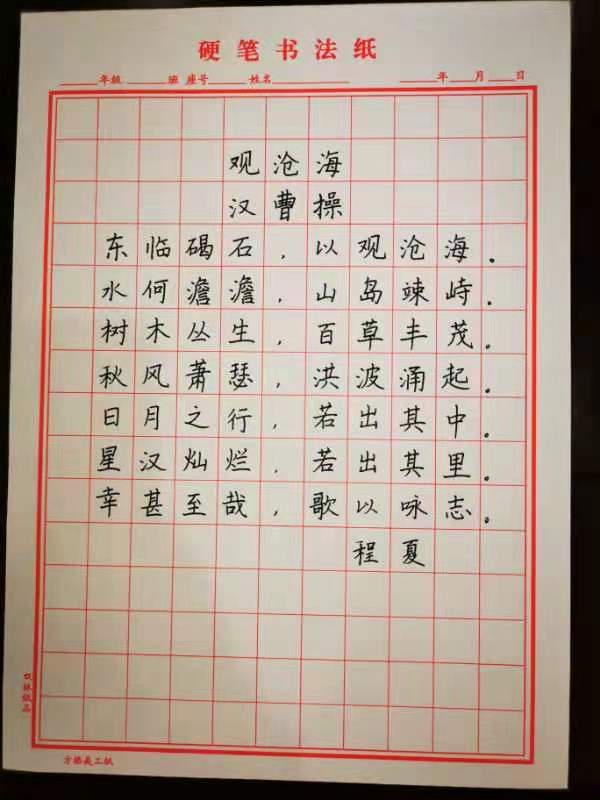 硬笔书法纸
年级 班 座号 姓名 年 月 日
观沧海
汉曹操
东临碣石，以观沧海。
水何澹澹，山岛竦峙。
树木丛生，百草丰茂。
秋风萧瑟，洪波涌起。
日月之行，若出其中。
星汉灿烂，若出其里。
幸甚至哉，歌以咏志。
程夏